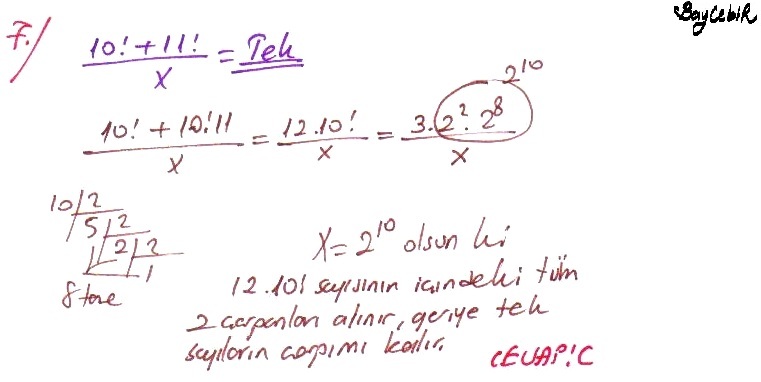 BayCebiR
7./ (10!+11!)/X = Tek
(10! + 10!11)/X = (12.10!)/X = (3.2².2⁸)/X 2¹⁰
10 2
5 2
2 2
1
8 tane
X=2¹⁰ olsun ki
12.10! sayısının içindeki tüm
2 çarpanları alınır, geriye tek
sayıların çarpımı kalır.
CEVAP:C